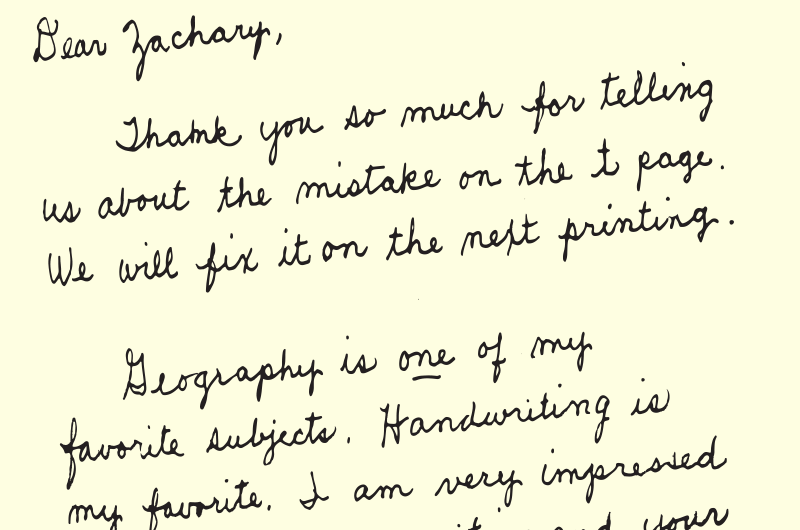 Dear Zachary,
Thank you so much for telling
us about the mistake on the t page.
We will fix it on the next printing.
Geography is one of my
favorite subjects. Handwriting is
my favorite. I am very impressed
your